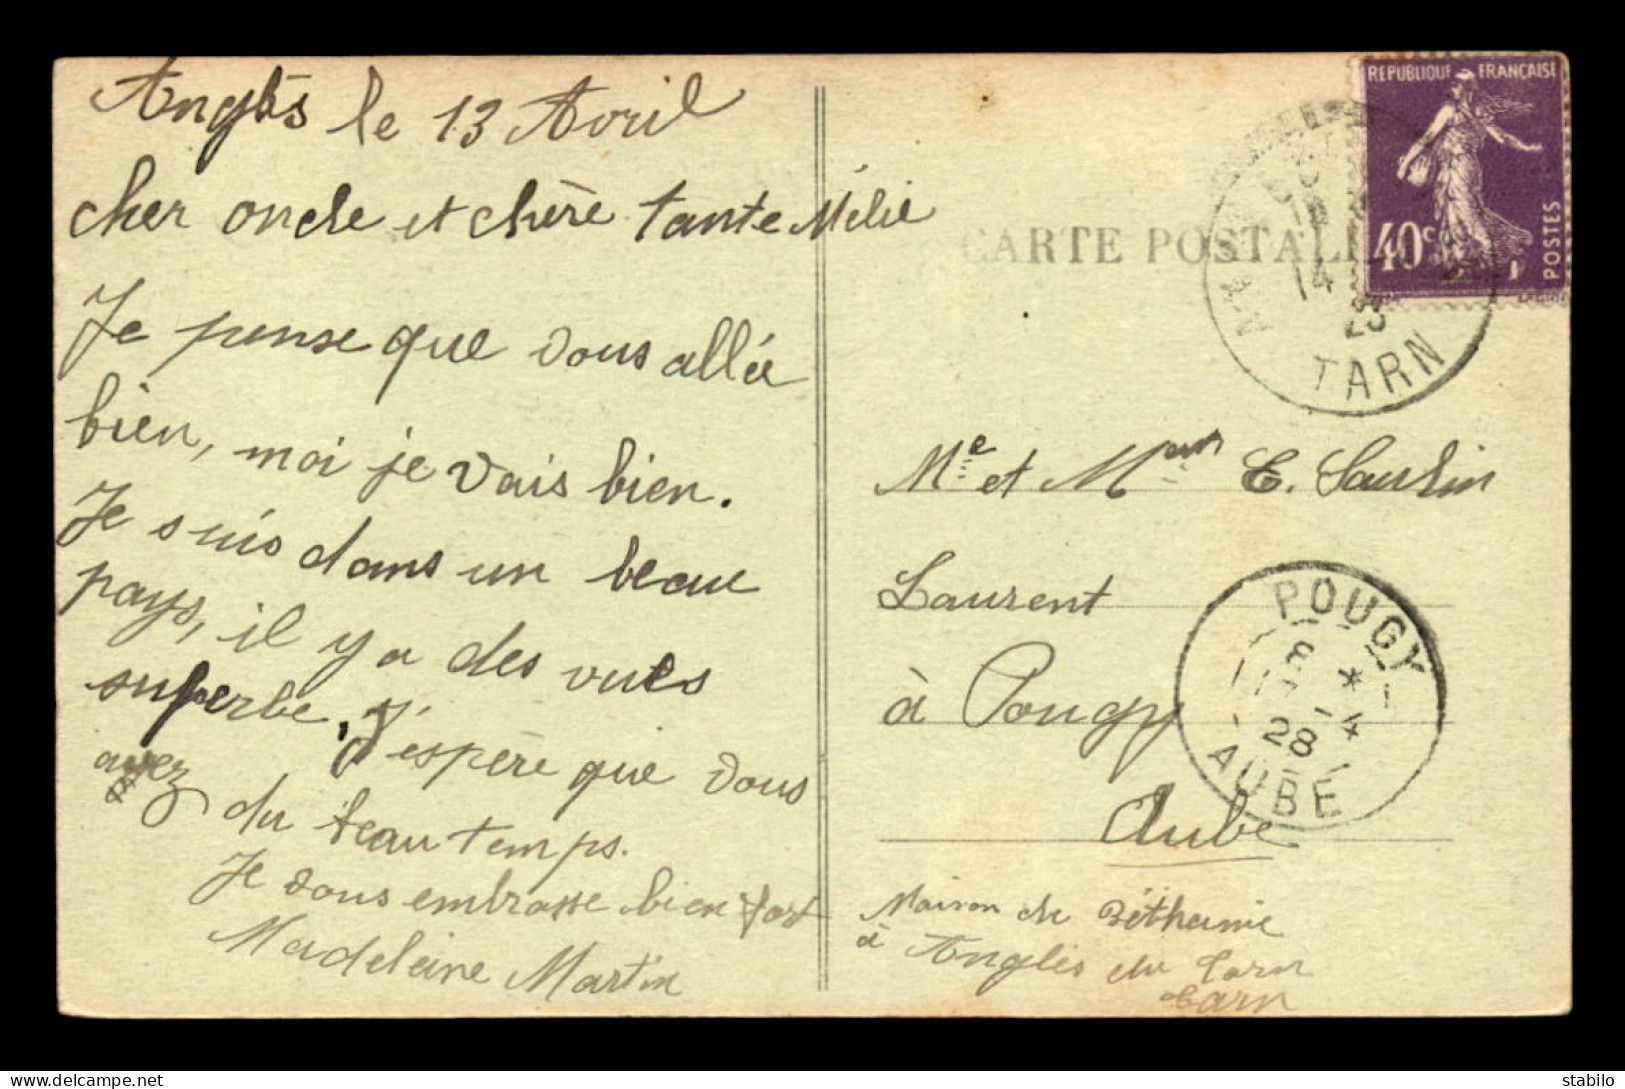 Anglès le 13 Avril
cher oncle et chère tante Mélie
Je pense que vous allée
bien, moi je vais bien.
Je suis dans un beau
pays, il y a des vues
superbe, j'espère que vous
avez du beau temps.
Je vous embrasse bien fort
Madeleine Martin
CARTE POSTALE
REPUBLIQUE FRANÇAISE
40c
POSTES
14
TARN
Me et Mam E. Saulin
Laurent
à Pougy
Aube
POUGY
*
28 4
AUBE
Maison de Béthanie
à Anglès du Tarn
Tarn
stabilo